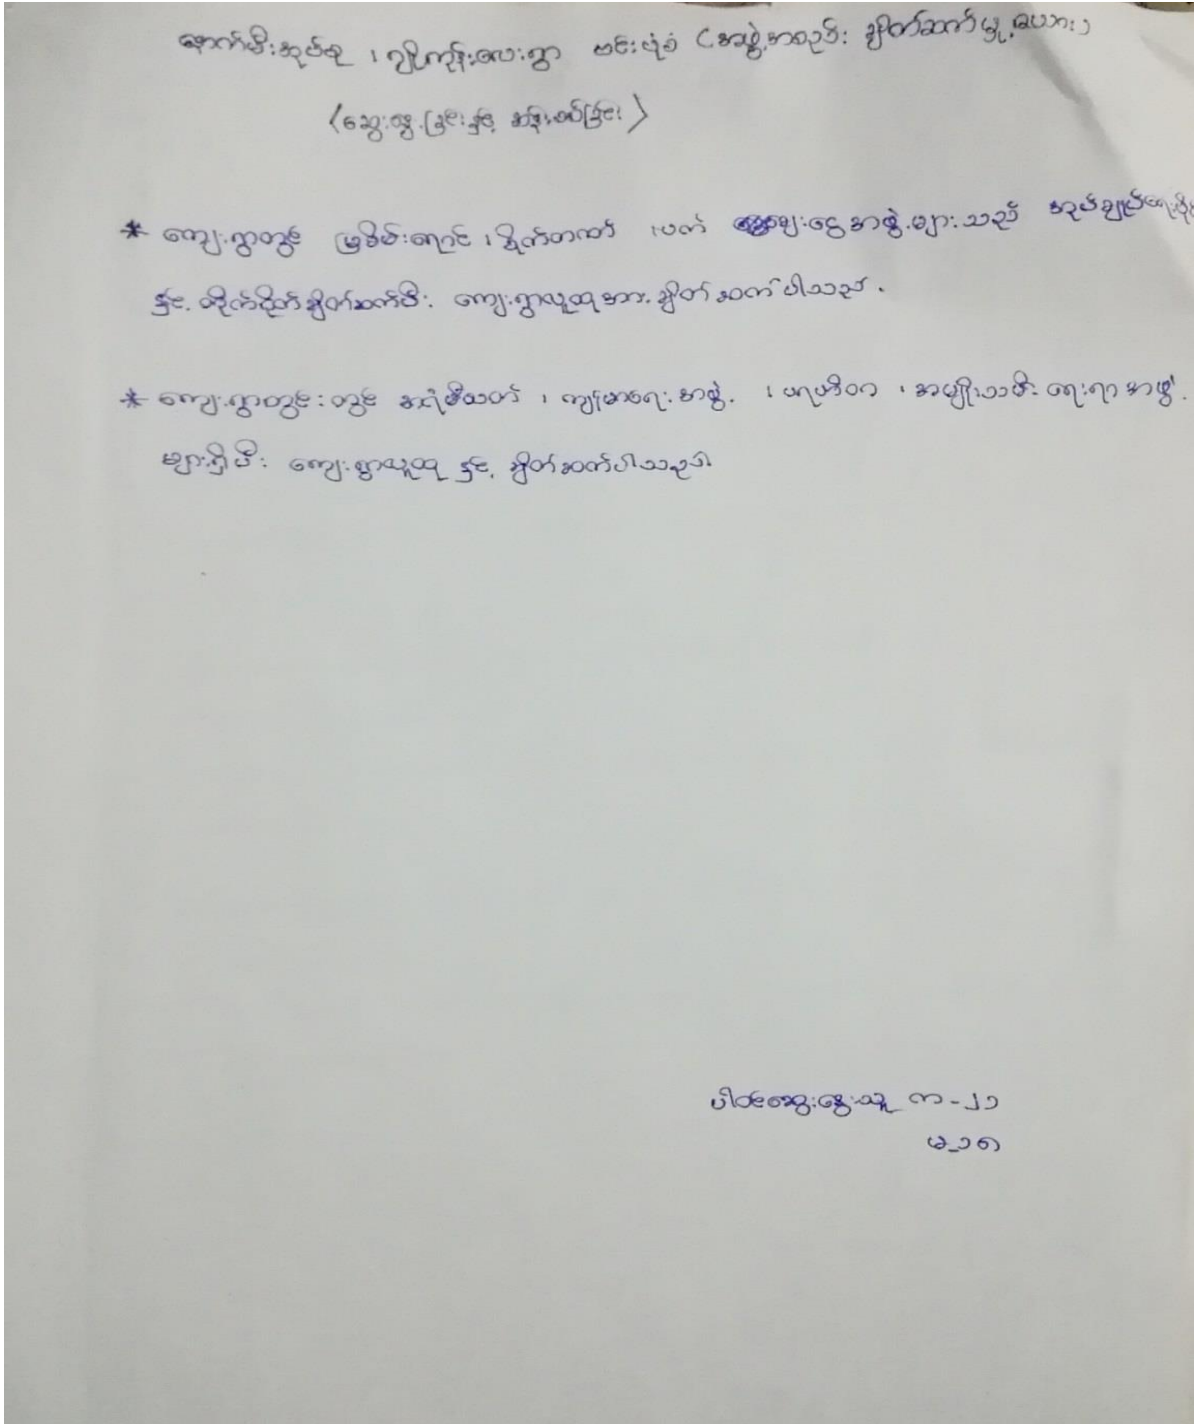 နောက်မီးအုပ်စု ၊ ဂျိုကုန်းလေးရွာ ဗင်းပုံစံ (အဖွဲ့အစည်း ချိတ်ဆက်မှု့ဇယား)
(ဆွေးနွေးခြင်းနှင့် ဆန်းစစ်ခြင်း)
* ကျေးရွာတွင် မြစိမ်းရောင် ၊ စိုက်တဏ် ၊ပတ် ချေးငွေအဖွဲ့များသည် အုပ်ချုပ်ရေးမှုး
နှင့် တိုက်ရိုက်ချိတ်ဆက်ပီး ကျေးရွာလူထုအား ချိတ်ဆက်ပါသည်.
* ကျေးရွာတွင်းတွင် အရံမီးသတ် ၊ ကျန်မာရေးအဖွဲ့ ၊ ပရဟိတ ၊ အမျိုးသမီးရေးရာအဖွဲ့
များရှိပီး ကျေးရွာလူထု နှင့် ချိတ်ဆက်ပါသည်။
ပါဝင်ဆွေးနွေးသူ က-၂၁
မ-၁၈